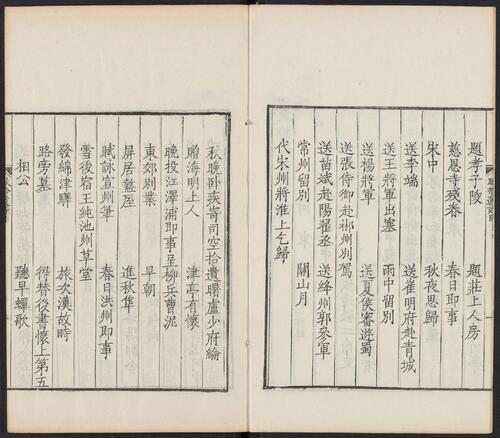 題孝子陵　題莊上人房
慈恩寺殘春　春日即事
宋中　秋夜思歸
送李端　送崔明府赴青城
送王將軍出塞　雨中留別
送楊將軍　送夏侯審遊蜀
送張侍御赴郴州別駕
送苗斌赴陽翟丞　送絳州郭參軍
常州留別　關山月
代宋州將淮上乞歸
秋晚卧疾寄司空拾遺曙盧少府綸
贈海明上人　津亭有懷
晚投江澤浦即事呈柳兵曹泥
東郊別業　早朝
屏居盩厔　進秋隼
賦詠宣州筆　春日洪州即事
雪後宿王純池州草堂
發綿津驛　旅次漢故畤
路旁墓　得替後書懷上第五
相公　聽早蟬歌